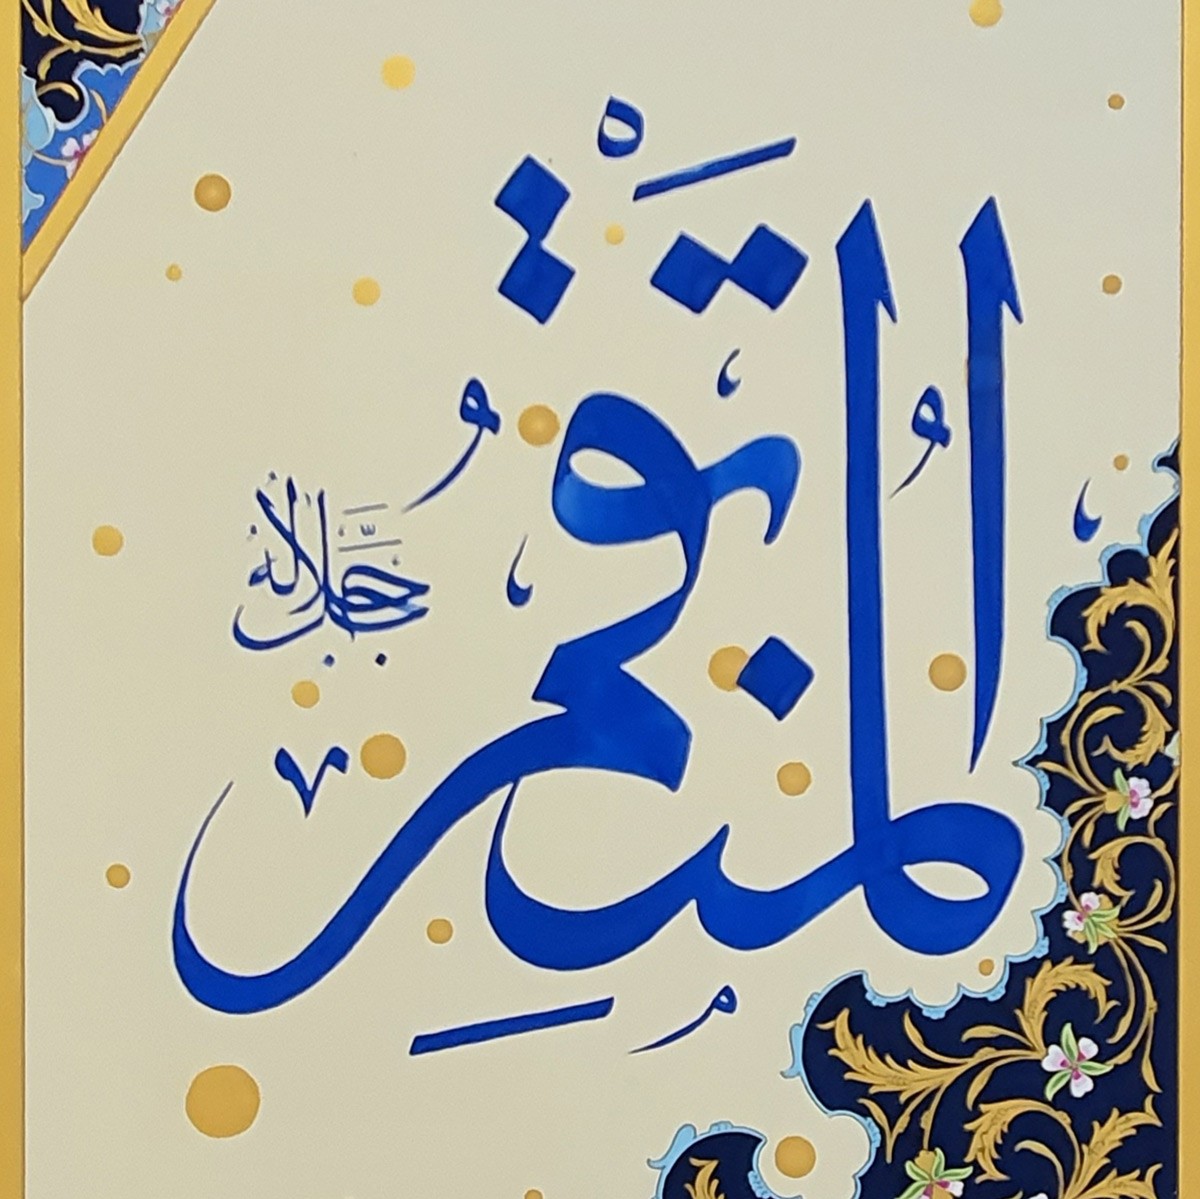 المنتقم
جل جلاله